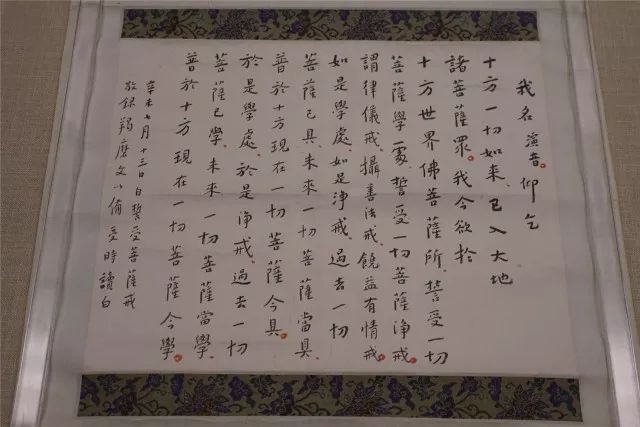 我名演音。仰乞
十方一切如来、已入大地
諸菩薩眾。我今欲於
十方世界佛菩薩所、誓受一切
菩薩學處、誓受一切菩薩淨戒。
謂律儀戒、攝善法戒、饒益有情戒。
如是學處、如是淨戒、過去一切
菩薩已具、未來一切菩薩當具、
普於十方現在一切菩薩今具。
於是學處、於是淨戒、過去一切
菩薩已學、未來一切菩薩當學、
普於十方現在一切菩薩今學。
辛未七月十三日自誓受菩薩戒
敬錄羯磨文以備受時讀白